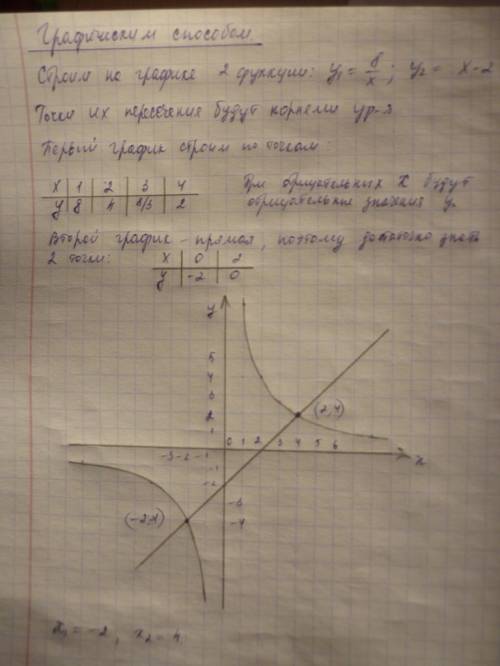 Графическим способом.
Строим на графике 2 функции: y₁ = 8/x ; y₂ = x - 2
Точки их пересечения будут корнями ур-я
Первый график строим по точкам:
x 1 2 3 4
y 8 4 8/3 2
При отрицательных x будут
отрицательные значения y.
Второй график - прямая, поэтому достаточно знать
2 точки:
x 0 2
y -2 0
y
5
4
3
2
1
(2,4)
-3 -2 -1 0 1 2 3 4 5 6
x
-1
-2
-3
-4
(-2,4)
x₁ = -2, x₂ = 4